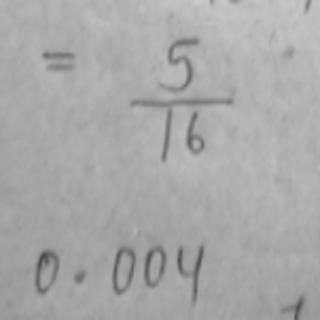 = 5/16
0.004